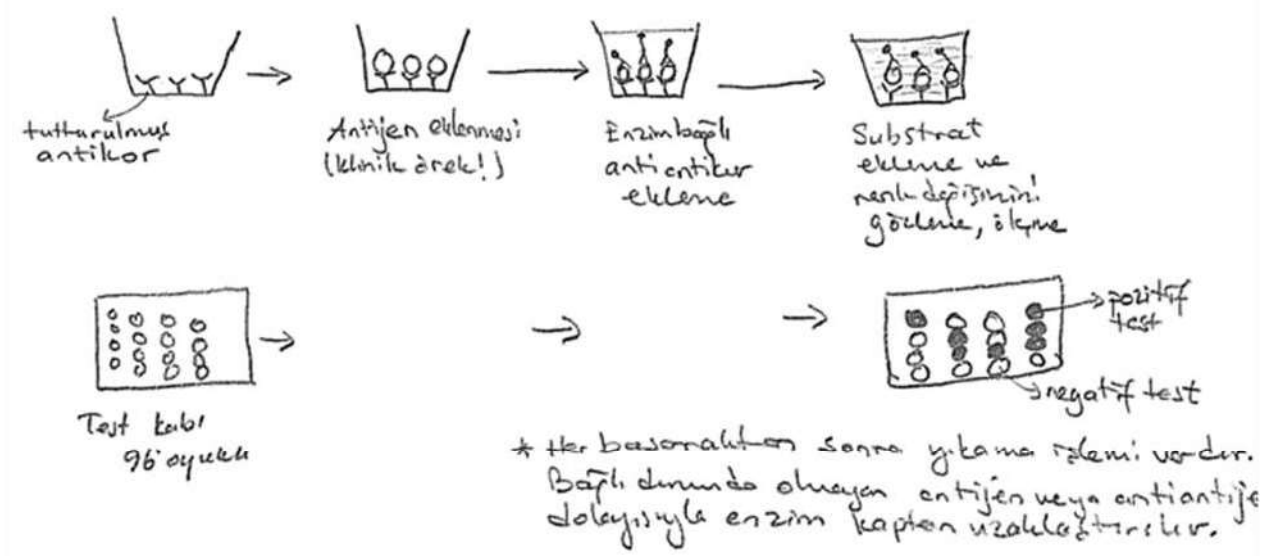 tutturulmuş
antikor
Antijen eklenmesi
(klinik örek!)
Enzim bağlı
antiantikor
ekleme
Substrat
ekleme ve
renk değişimini
gözleme, ölçme
pozitif
test
negatif test
Test kabı
96 oyuklu
* Her basamaktan sonra yıkama işlemi vardır.
Bağlı durumda olmayan antijen veya antiantije
dolayısıyla enzim kaptan uzaklaştırılır.